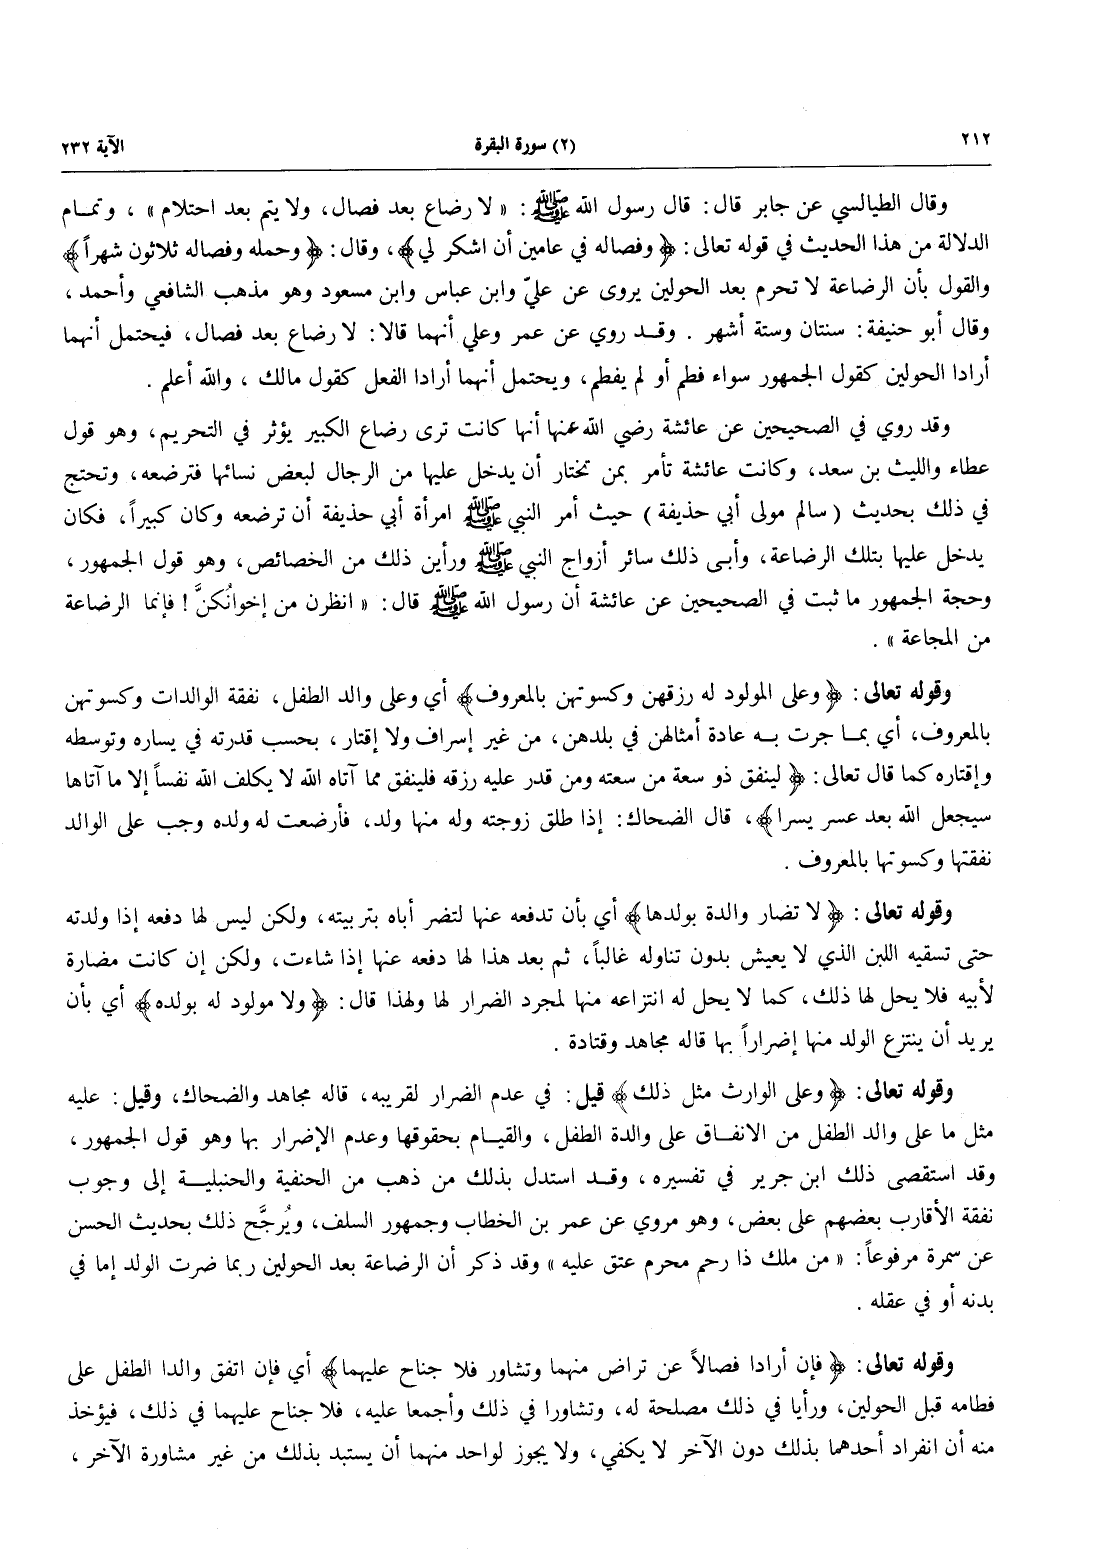 ٢١٢ (٢) سورة البقرة الآية ٢٣٢
وقال الطيالسي عن جابر قال: قال رسول الله ﷺ: « لا رضاع بعد فصال، ولا يتم بعد احتلام » ، وتمـام
الدلالة من هذا الحديث في قوله تعالى: ﴿ وفصاله في عامين أن اشكر لي﴾ ، وقال: ﴿ وحمله وفصاله ثلاثون شهراً﴾
والقول بأن الرضاعة لا تحرم بعد الحولين يروى عن عليّ وابن عباس وابن مسعود وهو مذهب الشافعي وأحمد ،
وقال أبو حنيفة: سنتان وستة أشهر . وقـد روي عن عمر وعلي أنهما قالا: لا رضاع بعد فصال، فيحتمل أنهما
أرادا الحولين كقول الجمهور سواء فطم أو لم يفطم، ويحتمل أنهما أرادا الفعل كقول مالك ، والله أعلم .
وقد روي في الصحيحين عن عائشة رضي الله عنها أنها كانت ترى رضاع الكبير يؤثر في التحريم، وهو قول
عطاء والليث بن سعد، وكانت عائشة تأمر بمن تختار أن يدخل عليها من الرجال لبعض نسائها فترضعه، وتحتج
في ذلك بحديث ( سالم مولى أبي حذيفة ) حيث أمر النبي ﷺ امرأة أبي حذيفة أن ترضعه وكان كبيراً، فكان
يدخل عليها بتلك الرضاعة، وأبـى ذلك سائر أزواج النبي ﷺ ورأين ذلك من الخصائص، وهو قول الجمهور ،
وحجة الجمهور ما ثبت في الصحيحين عن عائشة أن رسول الله ﷺ قال: « انظرن من إخوانُكنَّ ! فإنما الرضاعة
من المجاعة » .
وقوله تعالى: ﴿ وعلى المولود له رزقهن وكسوتهن بالمعروف﴾ أي وعلى والد الطفل، نفقة الوالدات وكسوتهن
بالمعروف، أي بمـا جرت بـه عادة أمثالهن في بلدهن، من غير إسراف ولا إقتار ، بحسب قدرته في يساره وتوسطه
وإقتاره كما قال تعالى: ﴿ لينفق ذو سعة من سعته ومن قدر عليه رزقه فلينفق مما آتاه الله لا يكلف الله نفساً إلا ما آتاها
سيجعل الله بعد عسر يسرا﴾، قال الضحاك: إذا طلق زوجته وله منها ولد، فأرضعت له ولده وجب على الوالد
نفقتها وكسوتها بالمعروف .
وقوله تعالى: ﴿ لا تضار والدة بولدها﴾ أي بأن تدفعه عنها لتضر أباه بتربيته، ولكن ليس لها دفعه إذا ولدته
حتى تسقيه اللبن الذي لا يعيش بدون تناوله غالباً، ثم بعد هذا لها دفعه عنها إذا شاءت، ولكن إن كانت مضارة
لأبيه فلا يحل لها ذلك، كما لا يحل له انتزاعه منها لمجرد الضرار لها ولهذا قال: ﴿ ولا مولود له بولده﴾ أي بأن
يريد أن ينتزع الولد منها إضراراً بها قاله مجاهد وقتادة .
وقوله تعالى: ﴿ وعلى الوارث مثل ذلك﴾ قيل: في عدم الضرار لقريبه، قاله مجاهد والضحاك، وقيل: عليه
مثل ما على والد الطفل من الانفـاق على والدة الطفل ، والقيـام بحقوقها وعدم الإضرار بها وهو قول الجمهور ،
وقد استقصى ذلك ابن جرير في تفسيره ، وقـد استدل بذلك من ذهب من الحنفية والحنبليـة إلى وجوب
نفقة الأقارب بعضهم على بعض، وهو مروي عن عمر بن الخطاب وجمهور السلف، ويُرجَّح ذلك بحديث الحسن
عن سمرة مرفوعاً: « من ملك ذا رحم محرم عتق عليه » وقد ذكر أن الرضاعة بعد الحولين ربما ضرت الولد إما في
بدنه أو في عقله .
وقوله تعالى: ﴿ فإن أرادا فصالاً عن تراض منهما وتشاور فلا جناح عليهما﴾ أي فإن اتفق والدا الطفل على
فطامه قبل الحولين، ورأيا في ذلك مصلحة له، وتشاورا في ذلك وأجمعا عليه، فلا جناح عليهما في ذلك، فيؤخذ
منه أن انفراد أحدهما بذلك دون الآخر لا يكفي، ولا يجوز لواحد منهما أن يستبد بذلك من غير مشاورة الآخر ،